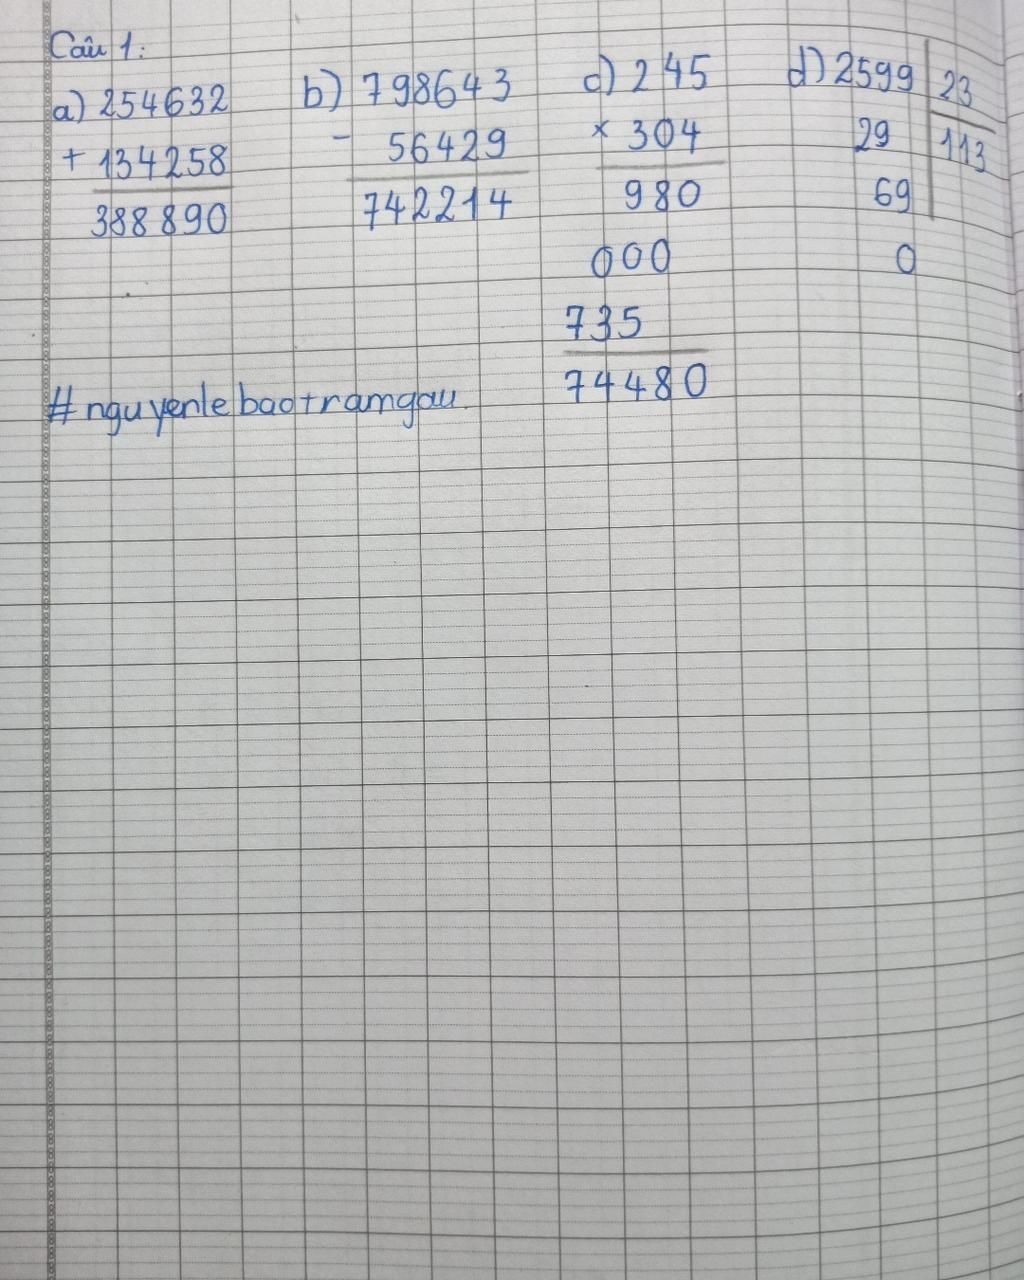 Câu 1:
a) 254632
+ 134258
388890
b) 798643
- 56429
742214
c) 245
× 304
980
000
735
74480
d) 2599 23
29 113
69
0
#nguyenlebaotramgau